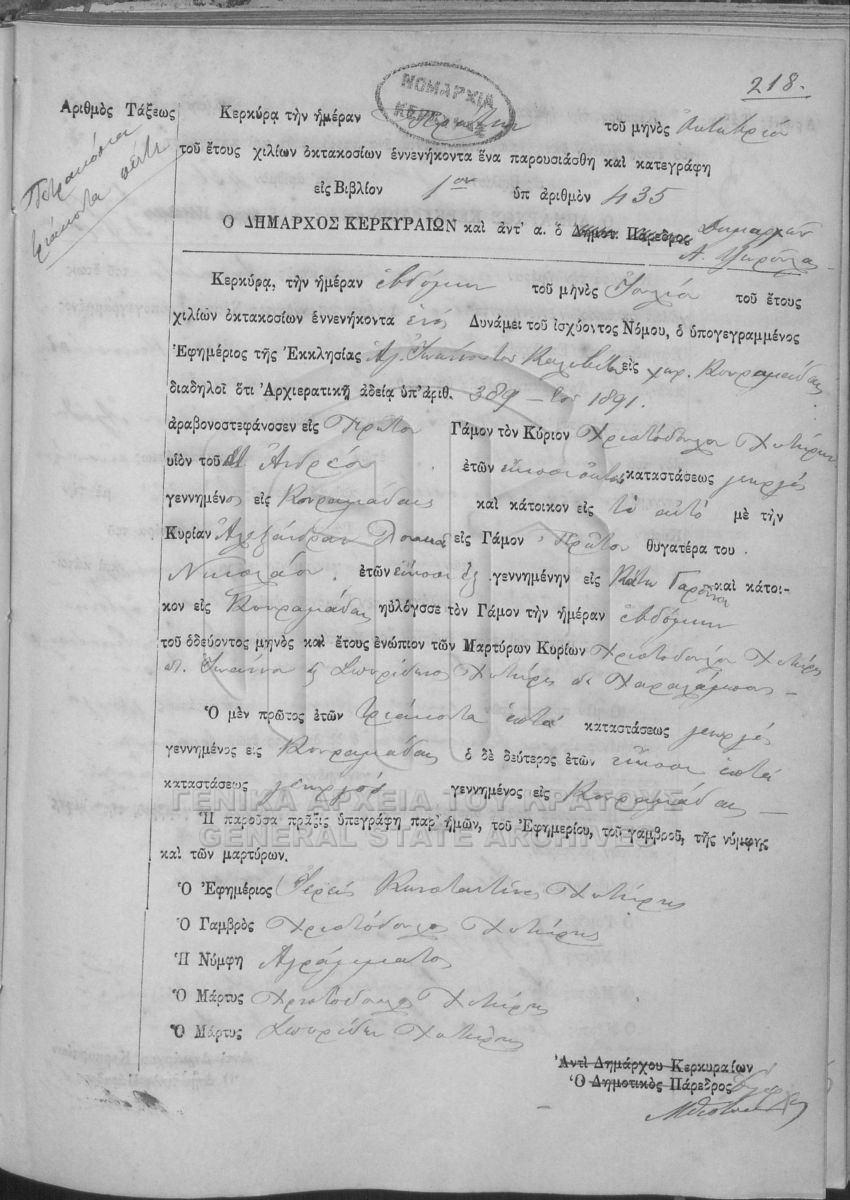 218.
ΝΟΜΑΡΧΙΑ
ΚΕΡΚΥΡΑΣ
Ἀριθμὸς Τάξεως
Τετρακόσια
τριάκοντα πέντε
Κερκύρᾳ τὴν ἡμέραν τοῦ μηνὸς Ὀκτωβρίου
τοῦ ἔτους χιλίων ὀκτακοσίων ἐννενήκοντα ἕνα παρουσιάσθη καὶ κατεγράφη
εἰς Βιβλίον 1ον ὑπ ἀριθμὸν 435
Ο ΔΗΜΑΡΧΟΣ ΚΕΡΚΥΡΑΙΩΝ καὶ ἀντ' α. ὁ Δημοτ. Πάρεδρος
Κερκύρᾳ, τὴν ἡμέραν ἑβδόμην τοῦ μηνὸς Ἰουλίου τοῦ ἔτους
χιλίων ὀκτακοσίων ἐννενήκοντα ἑνός Δυνάμει τοῦ ἰσχύοντος Νόμου, ὁ ὑπογεγραμμένος
Ἐφημέριος τῆς Ἐκκλησίας Ἁγ. Ἰωάννου του εἰς χωρ. Κουραμάδες
διαδηλοῖ ὅτι Ἀρχιερατικῇ ἀδείᾳ ὑπ' ἀριθ. 389 – τοῦ 1891.
ἀραβονοστεφάνοσεν εἰς Πρῶτον Γάμον τὸν Κύριον Χριστόδουλον Χυτήρην
υἱὸν τοῦ Ἀνδρέου ἐτῶν εἴκοσι ὀκτώ καταστάσεως γεωργός
γεννημένος εἰς Κουραμάδας καὶ κάτοικον εἰς τὸ αὐτό μὲ τὴν
Κυρίαν Ἀλεξάνδραν εἰς Γάμον Πρῶτον θυγατέρα του
Νικολάου ἐτῶν εἴκοσι ἕξ γεννημένην εἰς Κάτω Γαρούνα καὶ κάτοι-
κον εἰς Κουραμάδας ηὐλόγσσε τὸν Γάμον τὴν ἡμέραν ἑβδόμην
τοῦ ὁδεύοντος μηνὸς καὶ ἔτους ἐνώπιον τῶν Μαρτύρων Κυρίων Χριστοδούλου Χυτήρη
π. Ἰωάννου & Σπυρίδωνος Χυτήρη π. Χαραλάμπους –
Ὁ μὲν πρῶτος ἐτῶν τριάκοντα ἑπτά καταστάσεως γεωργός
γεννημένος εἰς Κουραμάδας ὁ δὲ δεύτερος ἐτῶν εἴκοσι ἑπτά
καταστάσεως γεωργός γεννημένος εἰς Κουραμάδας –
ΓΕΝΙΚΑ ΑΡΧΕΙΑ ΤΟΥ ΚΡΑΤΟΥΣ
Ἡ παροῦσα πρᾶξις ὑπεγράφη παρ' ἡμῶν, τοῦ Ἐφημερίου, τοῦ γαμβροῦ, τῆς νύμφης
GENERAL STATE ARCHIVES
καὶ τῶν μαρτύρων.
Ὁ Ἐφημέριος Ἱερεύς Κωνσταντῖνος Χυτήρης
Ὁ Γαμβρὸς Χριστόδουλος Χυτήρης
Ἡ Νύμφη Ἀγράμματος
Ὁ Μάρτυς Χριστόδουλος Χυτήρης
Ὁ Μάρτυς Σπυρίδων Χυτήρης
Ἀντὶ Δημάρχου Κερκυραίων
Ὁ Δημοτικὸς Πάρεδρος